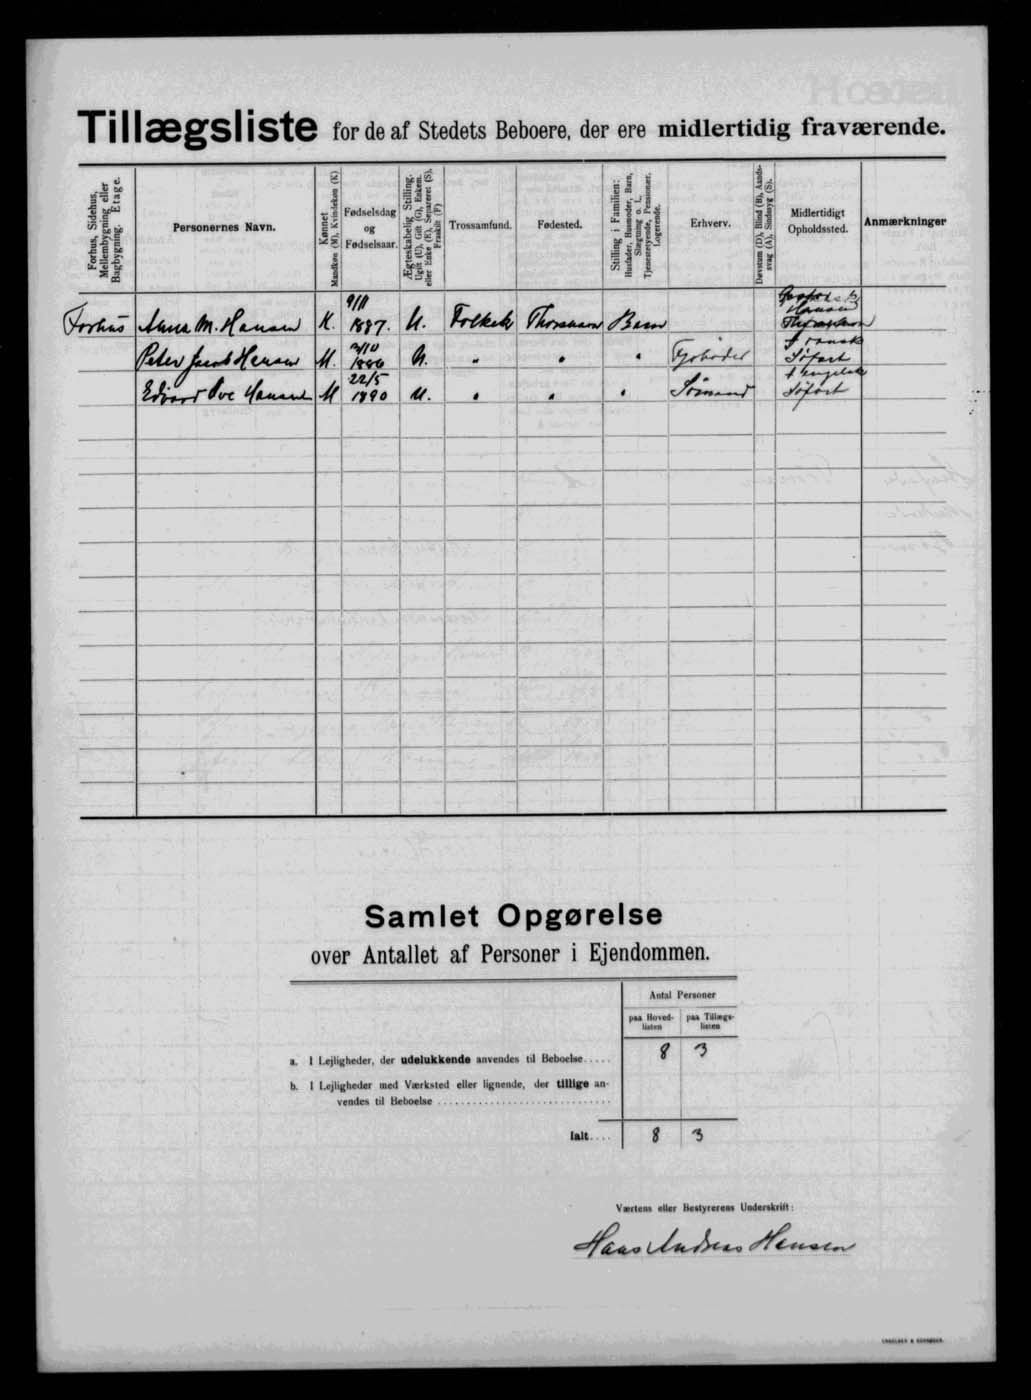 Tillægsliste for de af Stedets Beboere, der ere midlertidig fraværende.
Forhus, Sidehus, Mellembygning eller Bagbygning. Etage.
Personernes Navn.
Kønnet Mandkøn (M), Kvindekøn (K)
Fødselsdag og Fødselsaar.
Ægteskabelig Stilling. Ugift (U), Gift (G), Enkem. eller Enke (E), Separeret (S), Fraskilt (F)
Trossamfund.
Fødested.
Stilling i Familien: Husfader, Husmoder, Barn, Slægtning o. l., Tjenestetyende, Pensionær, Logerende.
Erhverv.
Døvstum (D), Blind (B), Aandssvag (A), Sindssyg (S).
Midlertidigt Opholdssted.
Anmærkninger
Forhus Anna M. Hansen K. 9/11 1887. U. Folkek Barn
Peter Jacob Hansen M. 1886 U. " " " Søfart
Edvard Ove Hansen M 22/5 1890 U. " " " Sømand i engelsk Søfart
Samlet Opgørelse
over Antallet af Personer i Ejendommen.
Antal Personer
paa Hoved-listen paa Tillægs-listen
a. I Lejligheder, der udelukkende anvendes til Beboelse..... 8 3
b. I Lejligheder med Værksted eller lignende, der tillige an-
vendes til Beboelse
Ialt.... 8 3
Værtens eller Bestyrerens Underskrift:
Hans Andreas Hansen